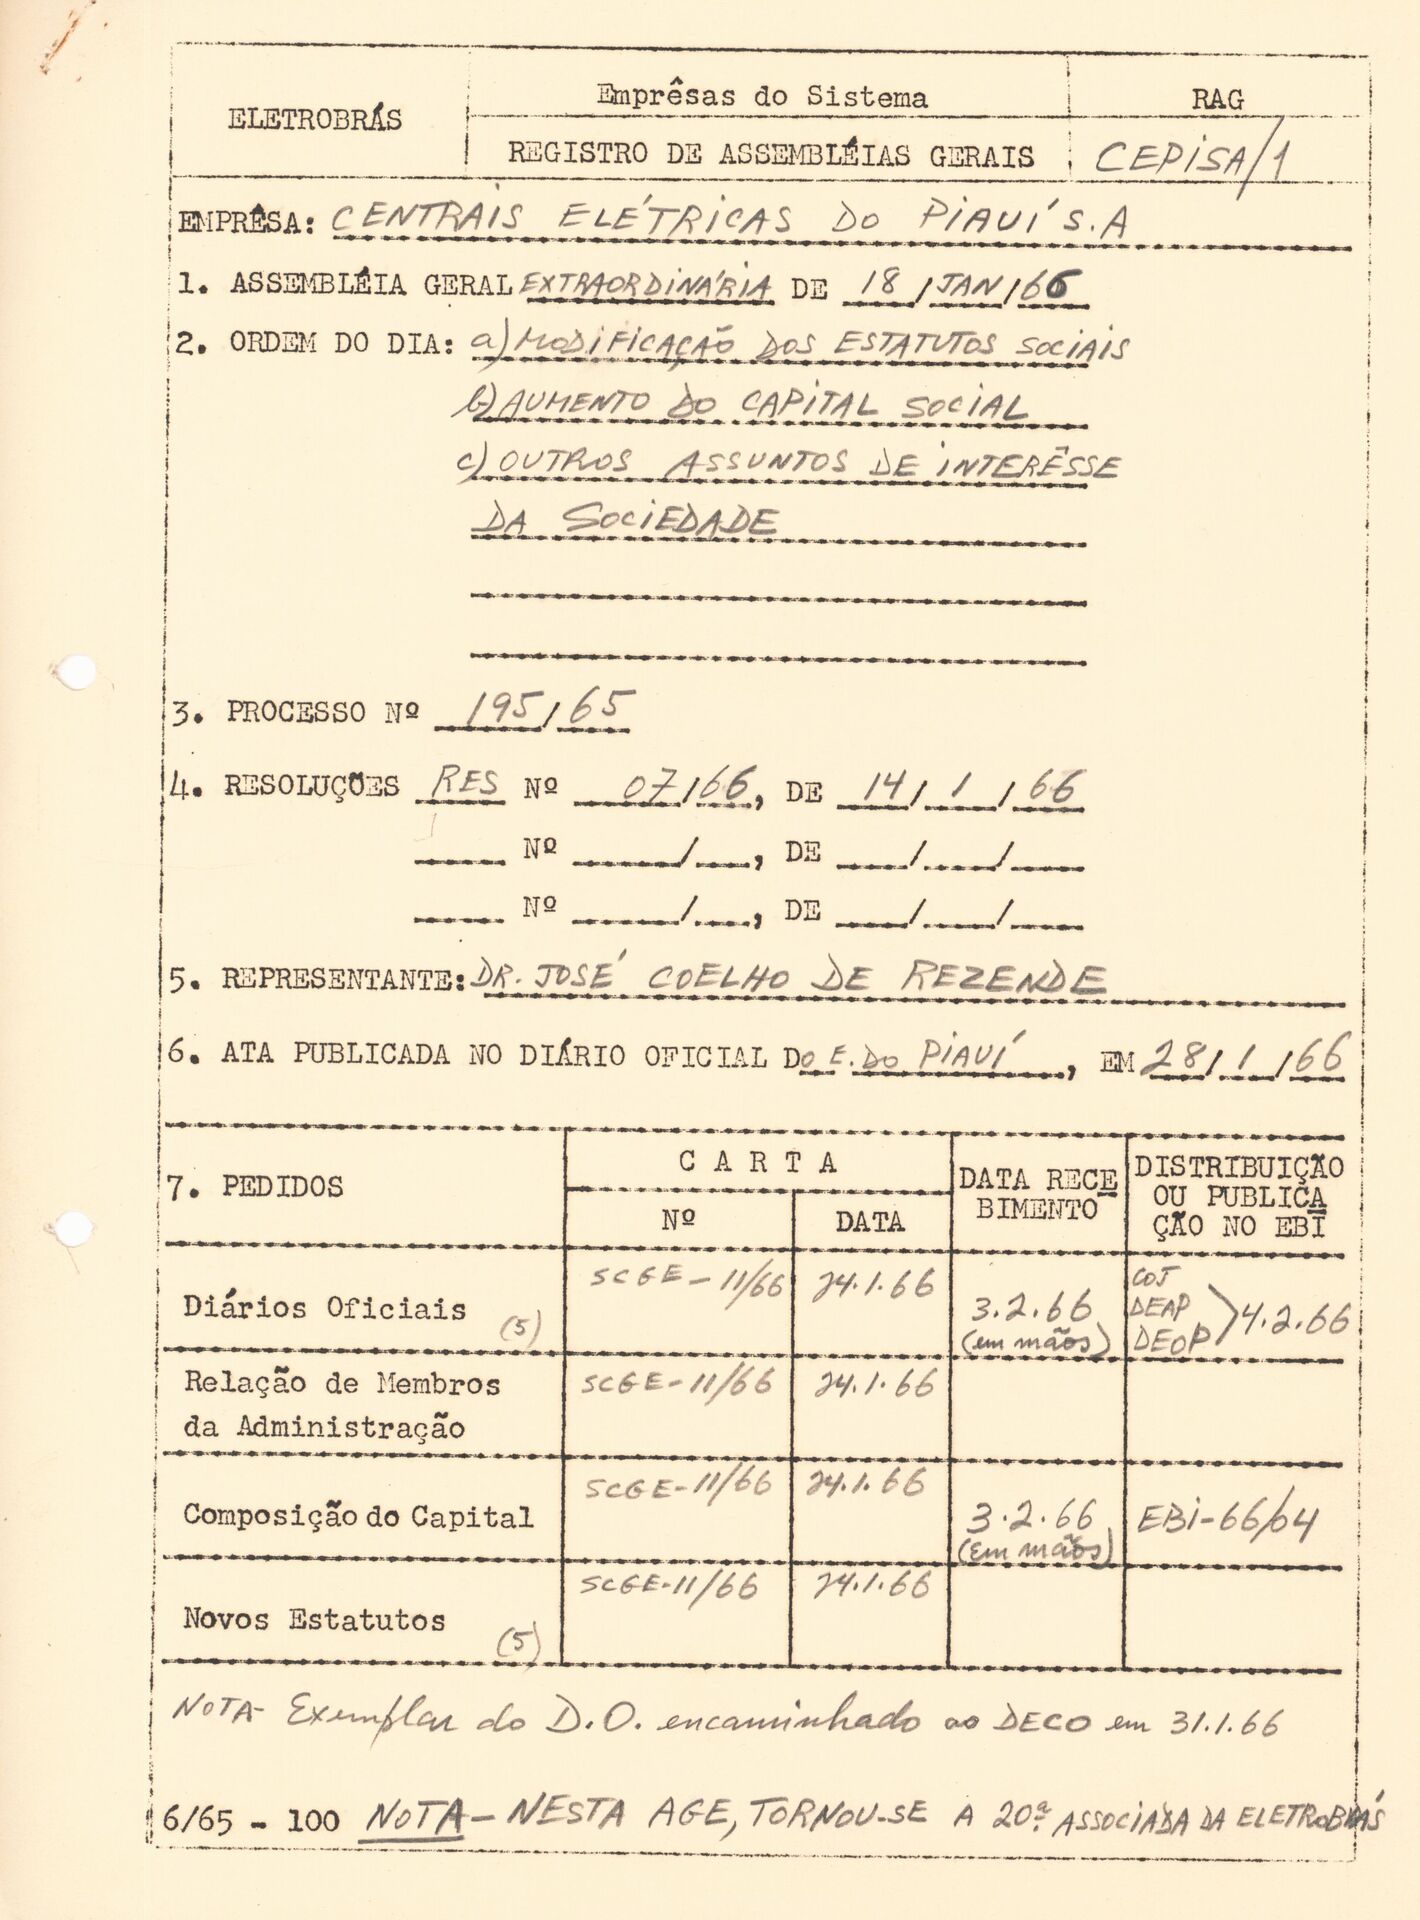 ELETROBRÁS
Emprêsas do Sistema
RAG
REGISTRO DE ASSEMBLÉIAS GERAIS
CEPISA/1
EMPRÊSA: CENTRAIS ELÉTRICAS DO PIAUÍ S.A
1. ASSEMBLÉIA GERAL EXTRAORDINÁRIA DE 18/JAN/66
2. ORDEM DO DIA: a) MODIFICAÇÃO DOS ESTATUTOS SOCIAIS
b) AUMENTO DO CAPITAL SOCIAL
c) OUTROS ASSUNTOS DE INTERÊSSE
DA SOCIEDADE
3. PROCESSO Nº 195/65
4. RESOLUÇÕES RES Nº 07/66, DE 14/1/66
Nº /, DE / /
Nº /, DE / /
5. REPRESENTANTE: DR. JOSÉ COELHO DE REZENDE
6. ATA PUBLICADA NO DIÁRIO OFICIAL DO E. DO PIAUÍ, EM 28/1/66
7. PEDIDOS
CARTA
Nº
DATA
DATA RECE
BIMENTO
DISTRIBUIÇÃO
OU PUBLICA
ÇÃO NO EBI
Diários Oficiais (5)
SCGE-11/66
24.1.66
3.2.66
(em mãos)
COJ
DEAP
DEOP
4.2.66
Relação de Membros
da Administração
SCGE-11/66
24.1.66
Composição do Capital
SCGE-11/66
24.1.66
3.2.66
(Em mãos)
EBI-66/04
Novos Estatutos (5)
SCGE-11/66
24.1.66
NOTA- Exemplar do D.O. encaminhado ao DECO em 31.1.66
6/65 - 100 NOTA - NESTA AGE, TORNOU-SE A 20ª ASSOCIADA DA ELETROBRÁS